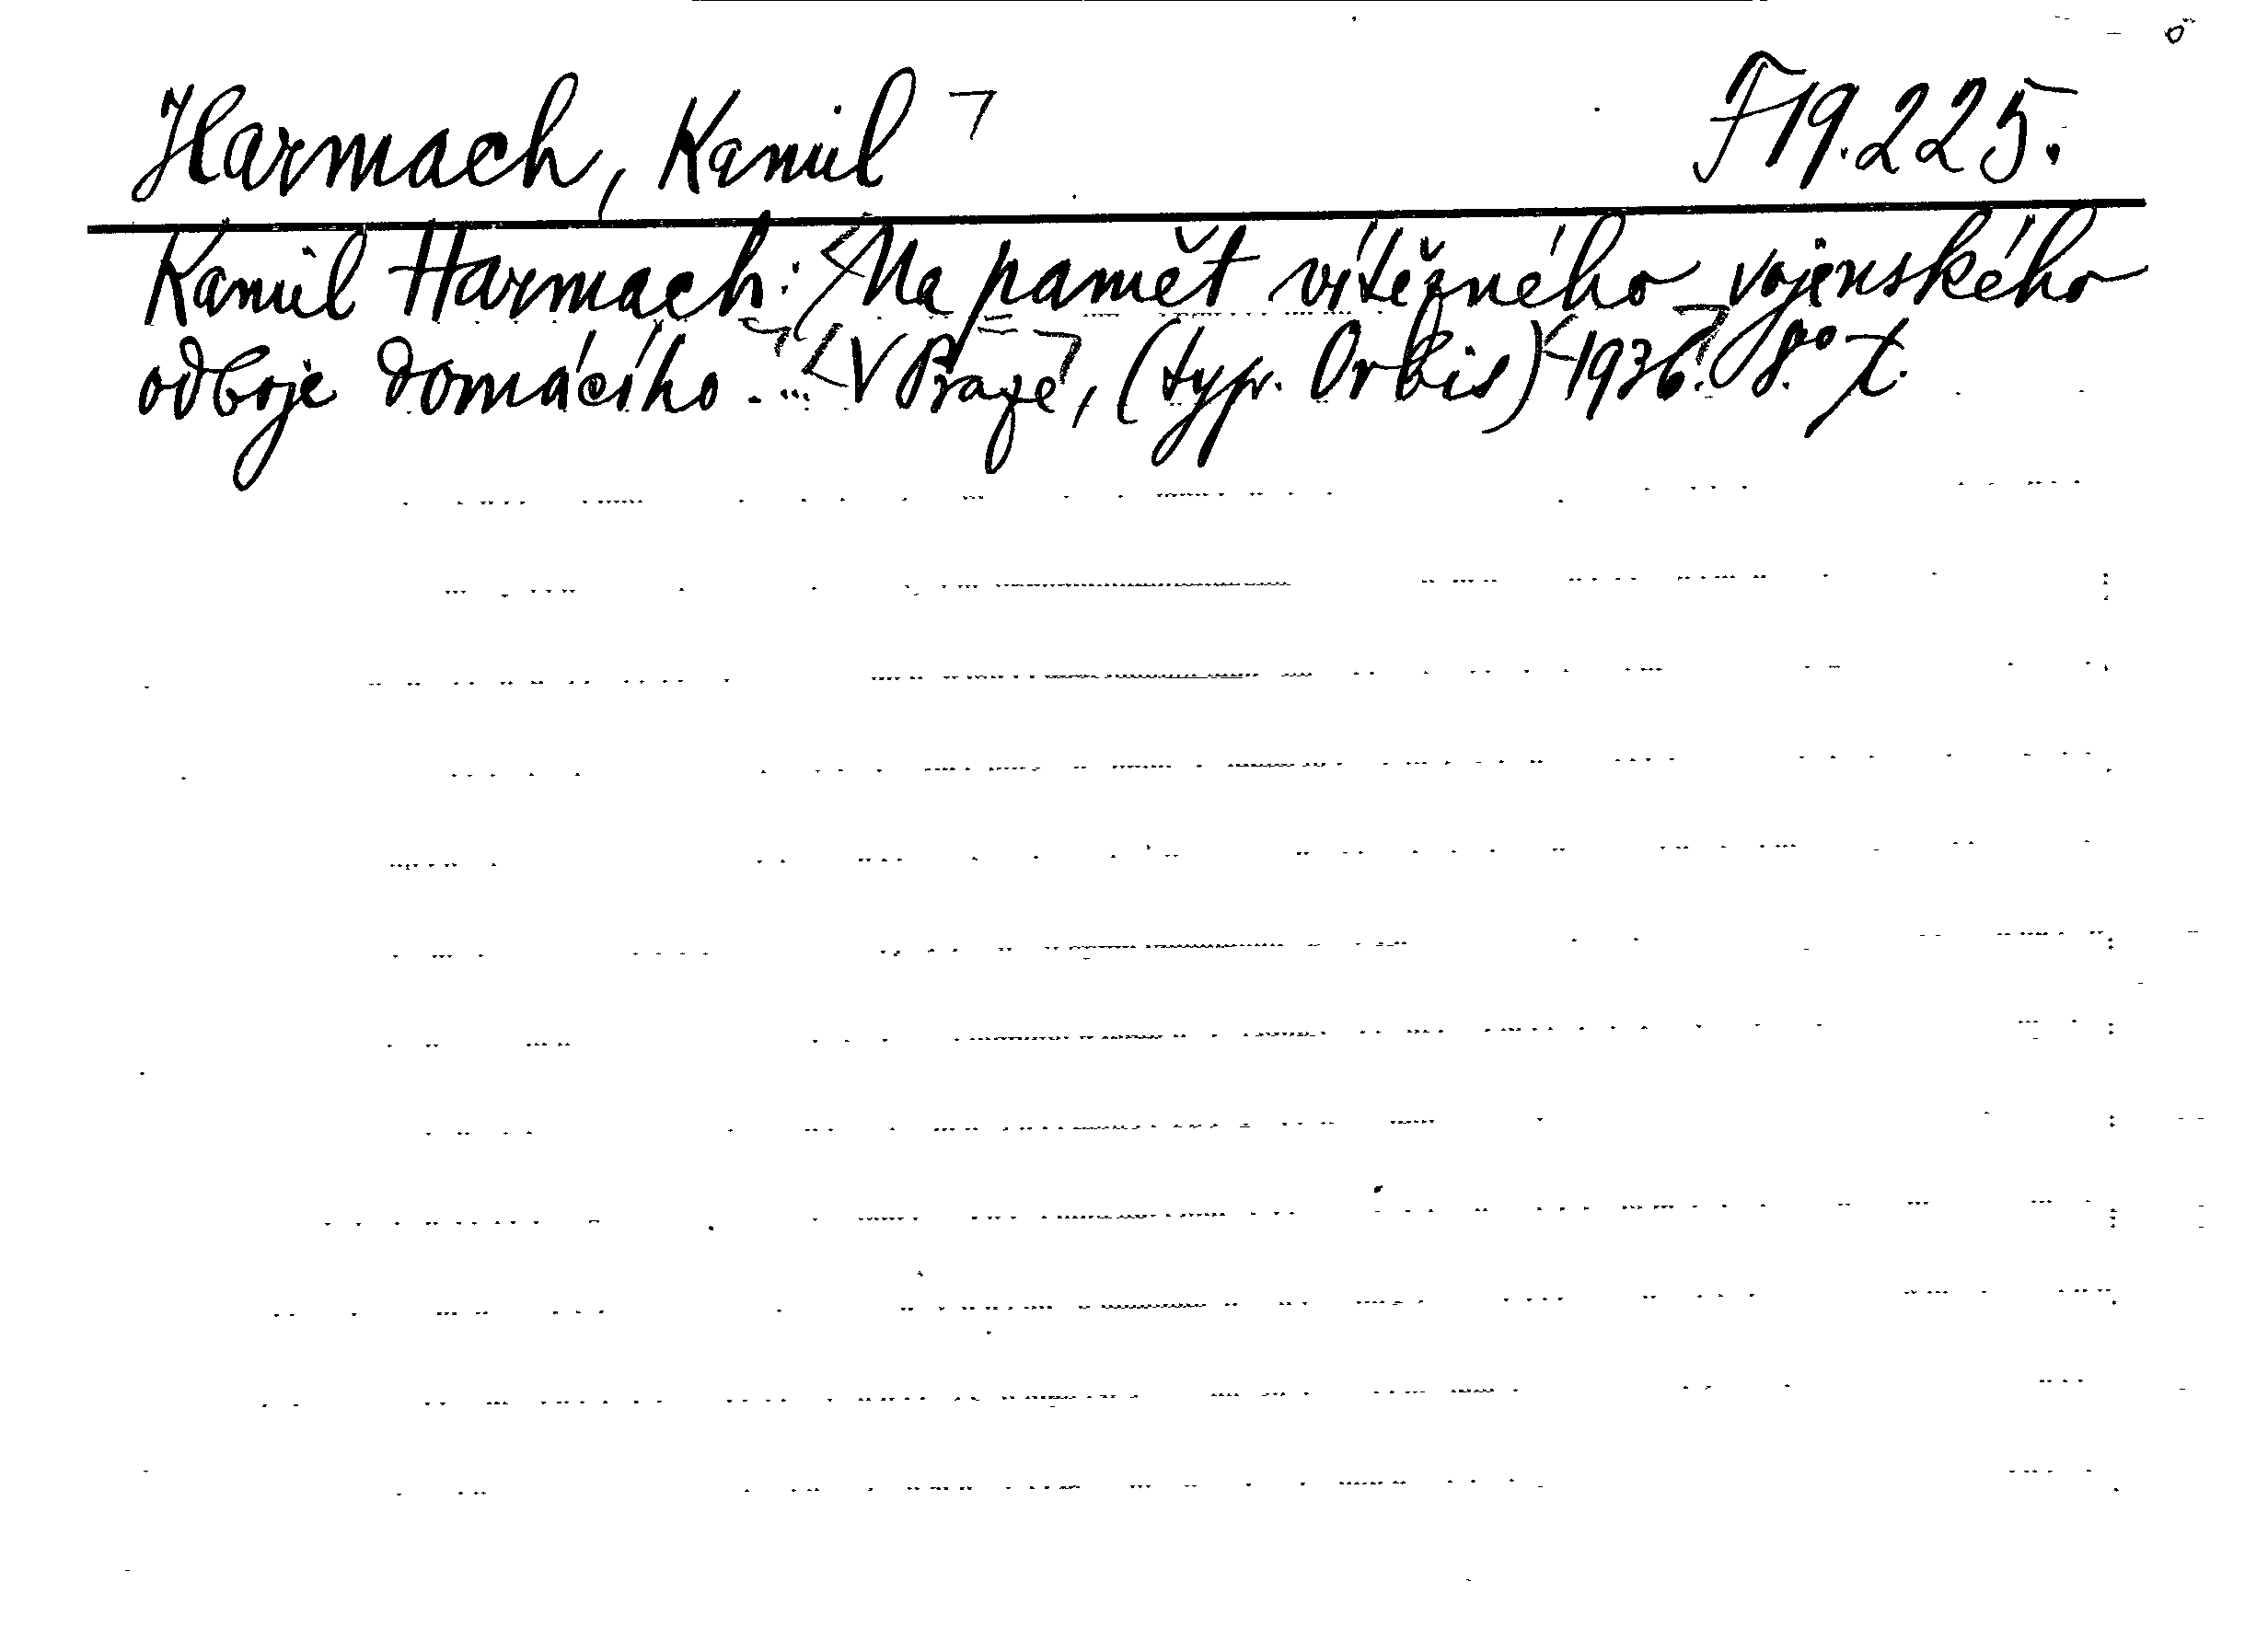 Harmach, Kamil F19.225.
Kamil Harmach: Na paměť vítězného vojenského
odboje domácího... V Praze, (typ. Orbis) 1936. 8° t.